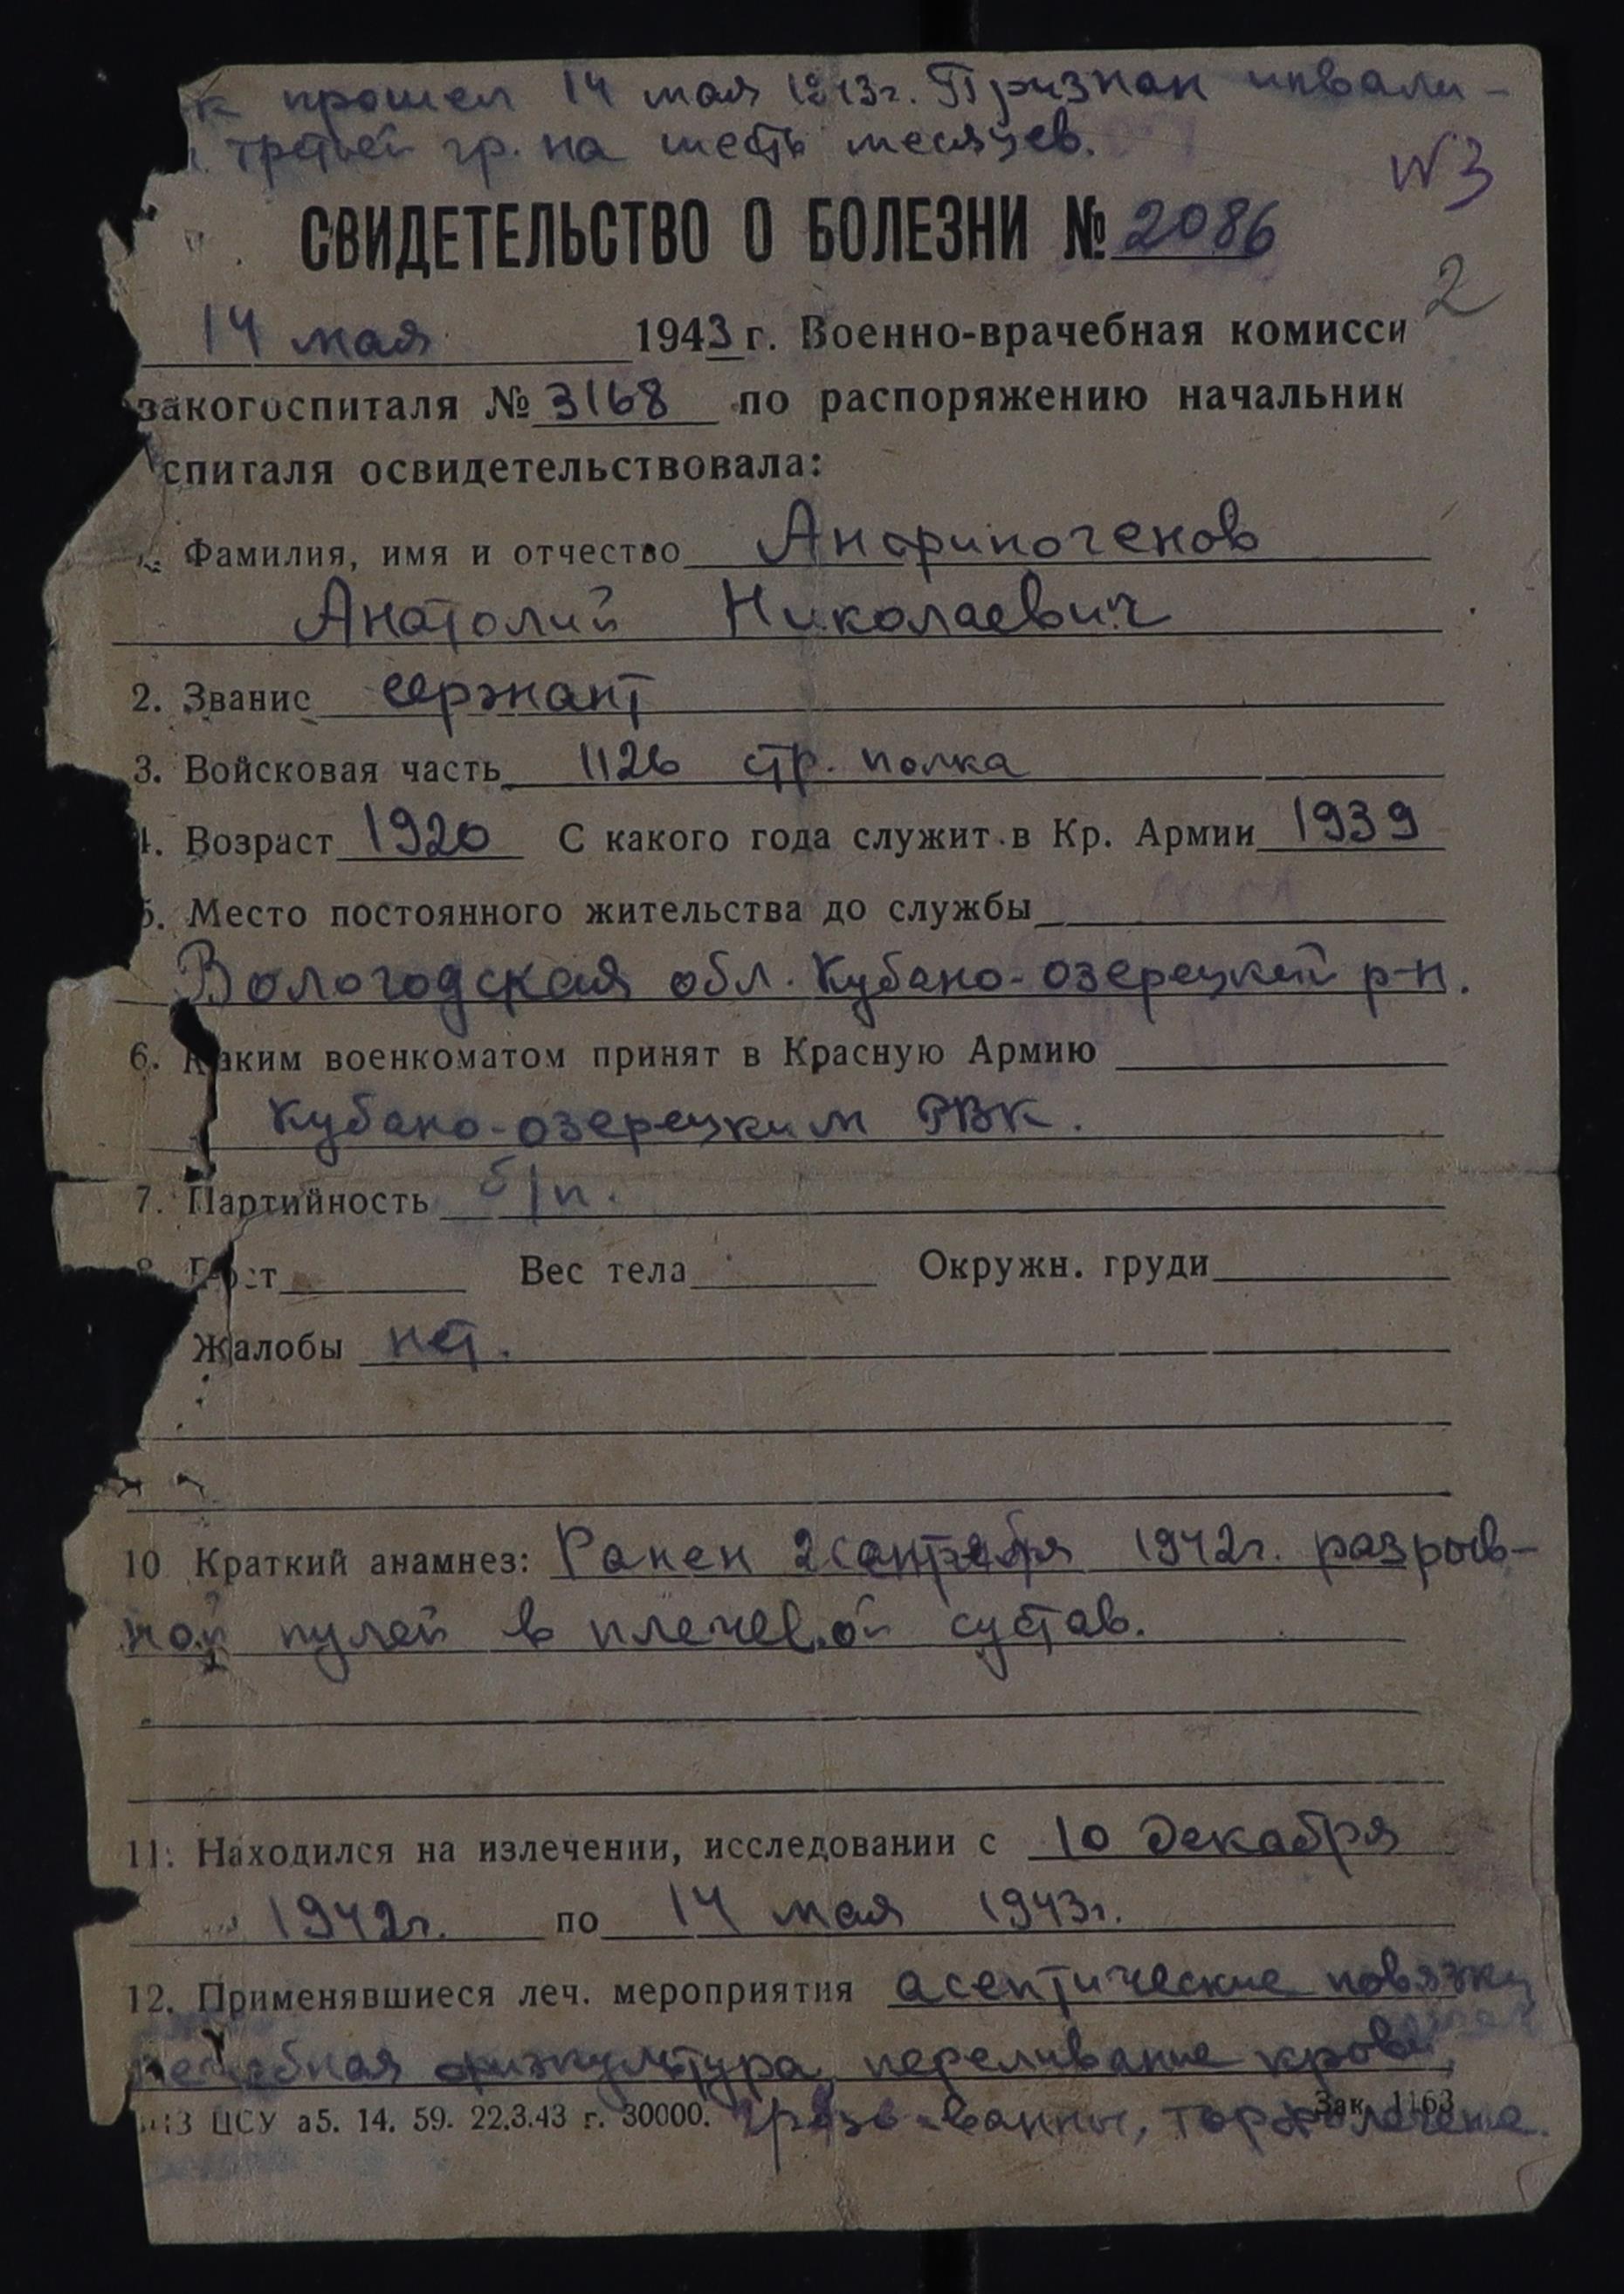 к прошел 14 мая 1943г. Признан инвали-
третьей гр. на шесть месяцев.
N3
СВИДЕТЕЛЬСТВО О БОЛЕЗНИ № 2086
2
14 мая 1943 г. Военно-врачебная комисси
закогоспиталя № 3168 по распоряжению начальник
спиталя освидетельствовала:
Фамилия, имя и отчество Анфиногенов
Анатолий Николаевич
2. Звание сержант
3. Войсковая часть 1126 стр. полка
4. Возраст 1920 С какого года служит в Кр. Армии 1939
5. Место постоянного жительства до службы
Вологодская обл. Кубано-озерецкий р-н.
6. Каким военкоматом принят в Красную Армию
Кубано-озерецким РВК.
7. Партийность б/п.
8. Рост Вес тела Окружн. груди
Жалобы нет.
10 Краткий анамнез: Ранен 2 сентября 1942г. разрыв-
ной пулей в плечевой сустав.
11. Находился на излечении, исследовании с 10 декабря
1942г. по 14 мая 1943г.
12. Применявшиеся леч. мероприятия асептические повязки
лечебная физкультура, переливание крови,
ЦСУ а5. 14. 59. 22.3.43 г. 30000. Зак. 1163
ванны,